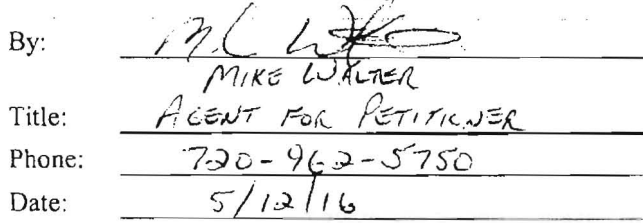 By: M C W
MIKE WALTER
Title: AGENT FOR PETITIONER
Phone: 720-962-5750
Date: 5/12/16